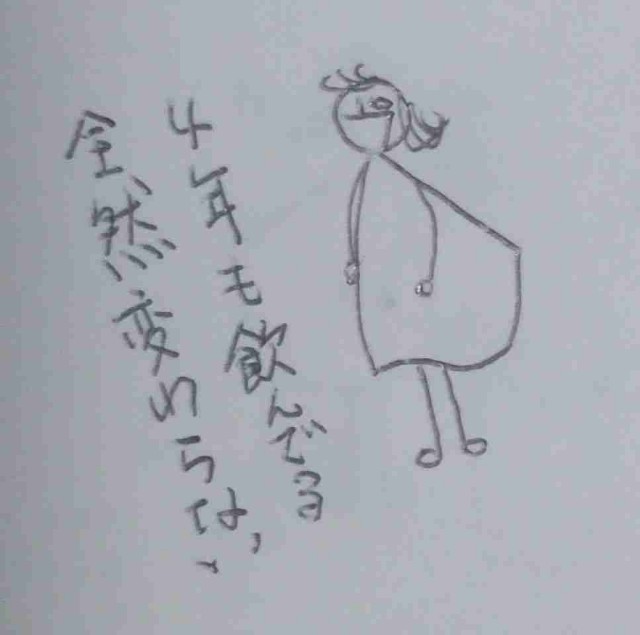 4年も飲んでる
全然変わらない